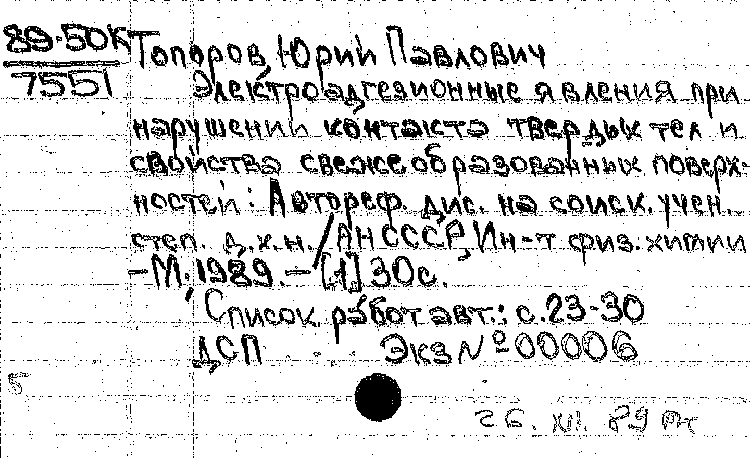 89-50К Топоров, Юрий Павлович
7551
Электроадгезионные явления при
нарушении контакта твердых тел и
свойства свежеобразованных поверх-
ностей: Автореф. дис. на соиск. учен.
степ. д.х.н. / АН СССР, Ин-т физ. химии
-М. 1989. - [1] 30с.
Список работ авт.: с. 23-30
ДСП Экз № 00006
5
26. XII. 89